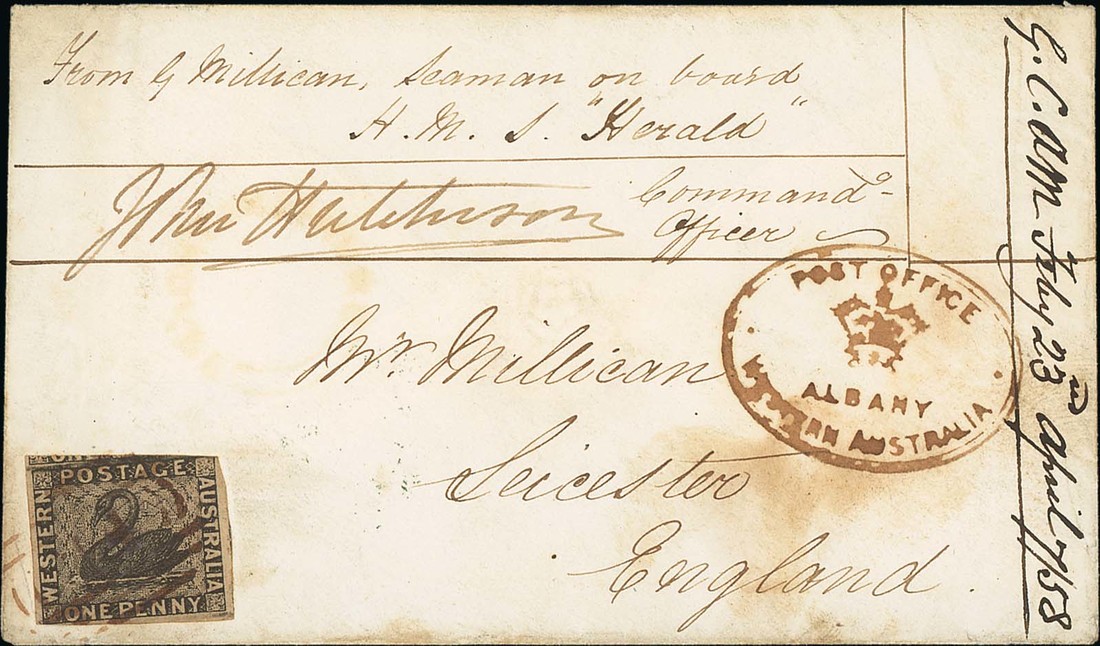 From G Millican, Seaman on board
H. M. S. "Herald"
John Hutchison
Commandg
Officer
Mr. Millican
Leicester
England.
POST OFFICE
ALBANY
WESTERN AUSTRALIA
POSTAGE
WESTERN
AUSTRALIA
ONE PENNY
Feby 23rd April 7/58